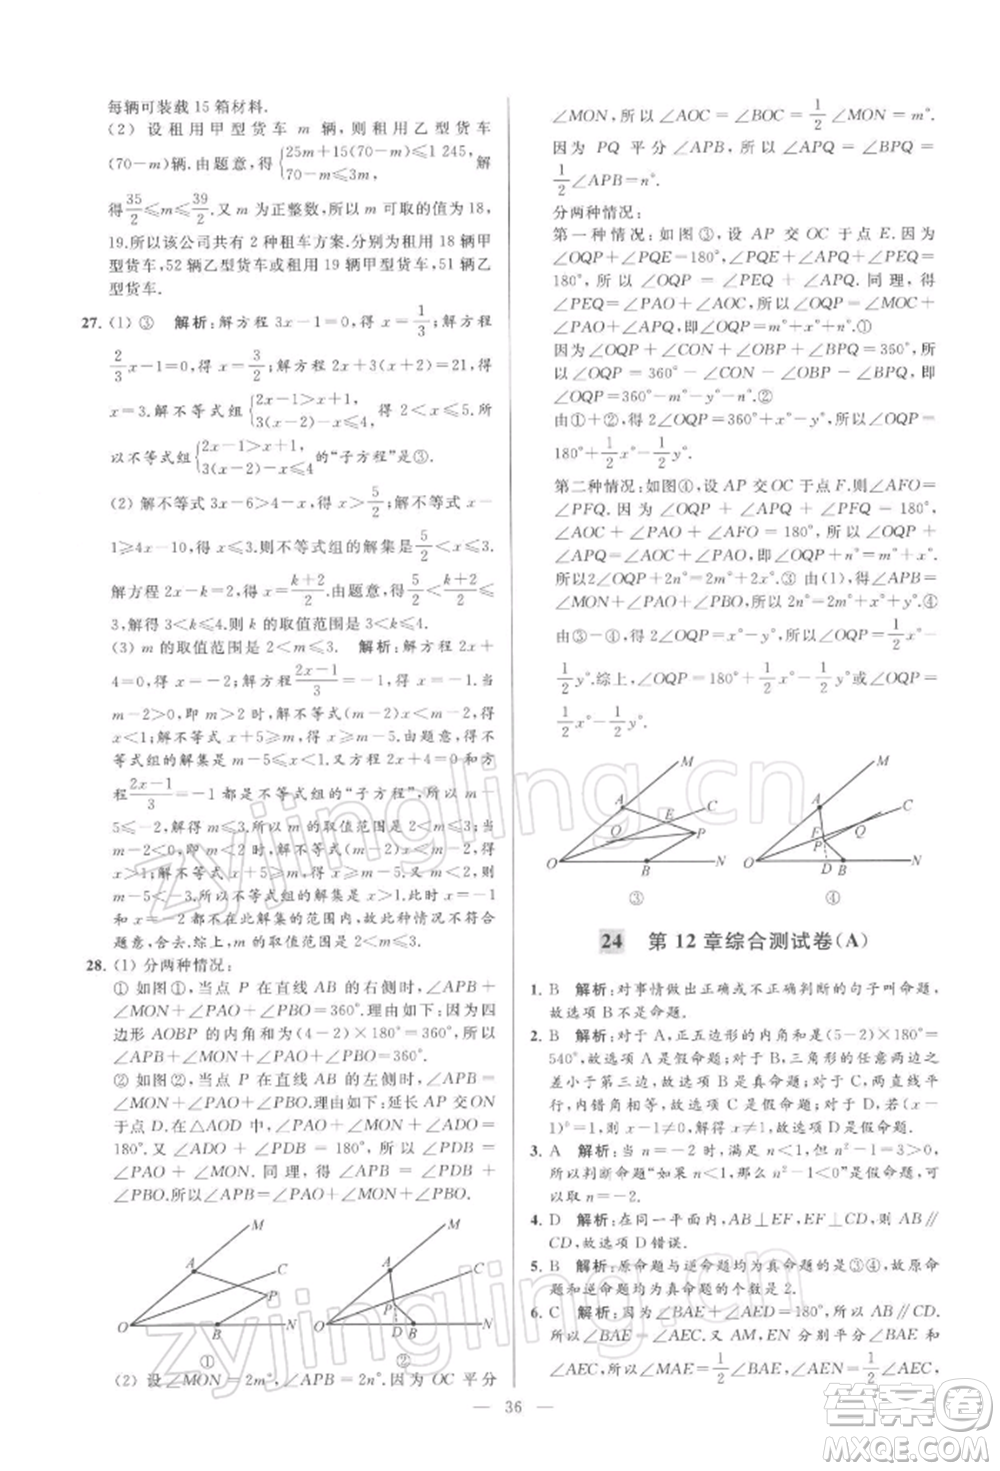 每辆可装载 15 箱材料.
(2) 设租用甲型货车 m 辆，则租用乙型货车
(70-m)辆. 由题意，得 {25m+15(70-m)≤1 245, 70-m≤3m, 解
得 35/2≤m≤39/2. 又 m 为正整数，所以 m 可取的值为 18,
19. 所以该公司共有 2 种租车方案. 分别为租用 18 辆甲
型货车，52 辆乙型货车或租用 19 辆甲型货车，51 辆乙
型货车.
27. (1) ③ 解析：解方程 3x-1=0，得 x=1/3；解方程
2/3x-1=0，得 x=3/2；解方程 2x+3(x+2)=21，得
x=3. 解不等式组 {2x-1>x+1, 3(x-2)-x≤4, 得 2<x≤5. 所
以不等式组 {2x-1>x+1, 3(x-2)-x≤4 的“子方程”是③.
(2) 解不等式 3x-6>4-x，得 x>5/2；解不等式 x-
1≥4x-10，得 x≤3. 则不等式组的解集是 5/2<x≤3.
解方程 2x-k=2，得 x=(k+2)/2. 所以 5/2<(k+2)/2≤
3，解得 3<k≤4. 则 k 的取值范围是 3<k≤4.
(3) m 的取值范围是 2<m≤3. 解析：解方程 2x+
4=0，得 x=-2；解方程 (2x-1)/3=-1，得 x=-1. 当
m-2>0，即 m>2 时，解不等式(m-2)x<m-2，得
x<1；解不等式 x+5≥m，得 x≥m-5. 由题意，得不
等式组的解集是 m-5≤x<1. 又方程 2x+4=0，方
程 (2x-1)/3=-1 都是不等式组的“子方程”，所以 m-
5≤-2，解得 m≤3. 所以 m 的取值范围是 2<m≤3. 当
m-2<0，即 m<2 时，解不等式(m-2)x<m-2，得
x>1；所以不等式组的解集应在 x>1 范围内，此时 x=-1
和 x=-2 都不在此解集的范围内，故此种情况不合
题意，舍去. 综上，m 的取值范围是 2<m≤3.
28. (1) 分两种情况：
① 如图①，当点 P 在直线 AB 的右侧时，∠APB+
∠MON+∠PAO+∠PBO=360°. 理由如下：因为四
边形 AOBP 的内角和为(4-2)×180°=360°，所以
∠APB+∠MON+∠PAO+∠PBO=360°.
② 如图②，当点 P 在直线 AB 的左侧时，∠APB=
∠MON+∠PAO+∠PBO. 理由如下：延长 AP 交 ON
于点 D. 在△AOD 中，∠MON+∠PAO+∠ADO=
180°. 又 ∠ADO+∠PDB=180°，所以 ∠PDB=
∠PAO+∠MON. 同理，得 ∠APB=∠PDB+
∠PBO. 所以∠APB=∠MON+∠PAO+∠PBO.
M
A
C
P
O
B
N
①
M
A
C
P
O
D
B
N
②
(2) 设∠MON=2m°，∠APB=2n°. 因为 OC 平分
∠MON，所以∠AOC=∠BOC=1/2∠MON=m°.
因为 PQ 平分∠APB，所以∠APQ=∠BPQ=
1/2∠APB=n°.
分两种情况：
第一种情况：如图③，设 AP 交 OC 于点 E. 因为
∠OQP+∠PQE=180°，∠PQE+∠APQ+∠PEQ=
180°，所以∠OQP=∠PEQ+∠APQ. 同理，得
∠PEQ=∠PAO+∠AOC，所以∠OQP=∠MOC+
∠PAO+∠APQ，即∠OQP=m°+x°+n°. ①
因为∠OQP+∠CON+∠OBP+∠BPQ=360°，所
以∠OQP=360°-∠CON-∠OBP-∠BPQ，即
∠OQP=360°-m°-y°-n°. ②
由①+②，得 2∠OQP=360°+x°-y°，所以∠OQP=
180°+1/2x°-1/2y°.
第二种情况：如图④，设 AP 交 OC 于点 F. 则∠AFO=
∠PFQ. 因为∠OQP+∠APQ+∠PFQ=180°，
∠AOC+∠PAO+∠AFO=180°，所以∠OQP+
∠APQ=∠AOC+∠PAO，即∠OQP+n°=m°+x°.
所以2∠OQP+2n°=2m°+2x°. ③ 由(1)，得∠APB=
∠MON+∠PAO+∠PBO，所以 2n°=2m°+x°+y°. ④
由③-④，得 2∠OQP=x°-y°，所以∠OQP=
1/2x°-1/2y°. 综上，∠OQP=180°+1/2x°-1/2y°或∠OQP=
1/2x°-1/2y°.
M
A
C
E
Q
P
O
B
N
③
M
A
C
F
Q
P
O
D
B
N
④
24 第 12 章综合测试卷(A)
1. B 解析：对事情做出正确或不正确判断的句子叫命题，
故选项 B 不是命题.
2. B 解析：对于 A，正五边形的内角和是(5-2)×180°=
540°，故选项 A 是假命题；对于 B，三角形的任意两边之
差小于第三边，故选项 B 是真命题；对于 C，两直线平
行，内错角相等，故选项 C 是假命题；对于 D，若(x-
1)⁰=1，则 x-1≠0，所以 x≠1，故选项 D 是假命题.
3. A 解析：当 n=-2 时，满足 n<1，但 n²-1=3>0，
所以判断命题“如果 n<1，那么 n²-1<0”是假命题，可
以取 n=-2.
4. D 解析：在同一平面内，AB⊥EF，EF⊥CD，则 AB∥
CD，故选项 D 错误.
5. B 解析：原命题与逆命题均为真命题的是③④，故原命
题和逆命题均为真命题的个数是 2.
6. C 解析：因为∠BAE+∠AED=180°，所以 AB∥CD，
所以∠BAE=∠AEC. 又 AM, EN 分别平分∠BAE 和
∠AEC，所以∠MAE=1/2∠BAE，∠AEN=1/2∠AEC，
36
zyjingling.cn
zyjingling.cn
答案圈
MXQE.COM